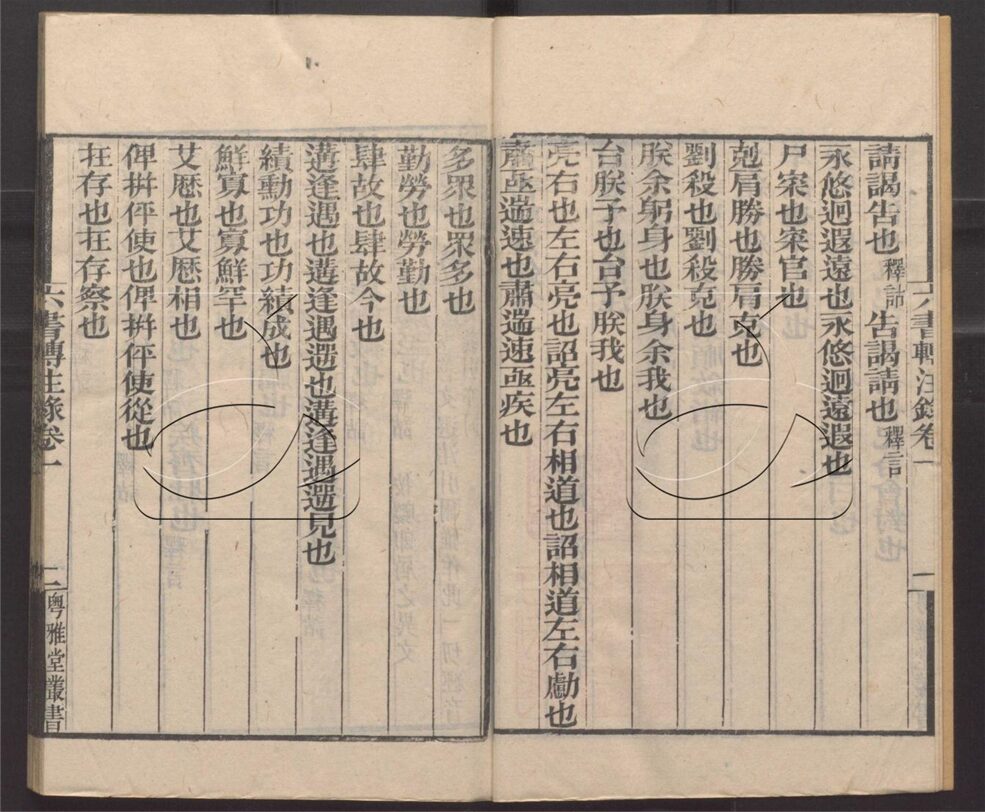 六書轉注錄卷一 一
請謁告也釋詁告謁請也釋言
永悠迥遐遠也永悠迥遠遐也
尸寀也寀官也
剋肩勝也勝肩克也
劉殺也劉殺克也
朕余躬身也朕身余我也
台朕予也台予朕我也
亮右也左右亮也詔亮左右相道也詔相道左右勴也
肅亟遄速也肅遄速亟疾也
多眾也眾多也
勤勞也勞勤也
肆故也肆故今也
遘逢遇也遘逢遇遻也遘逢遇遻見也
績勳功也功績成也
鮮寡也寡鮮罕也
艾厯也艾厯相也
俾拼伻使也俾拼伻使從也
在存也在存察也
六書轉注錄卷一 二 粵雅堂叢書